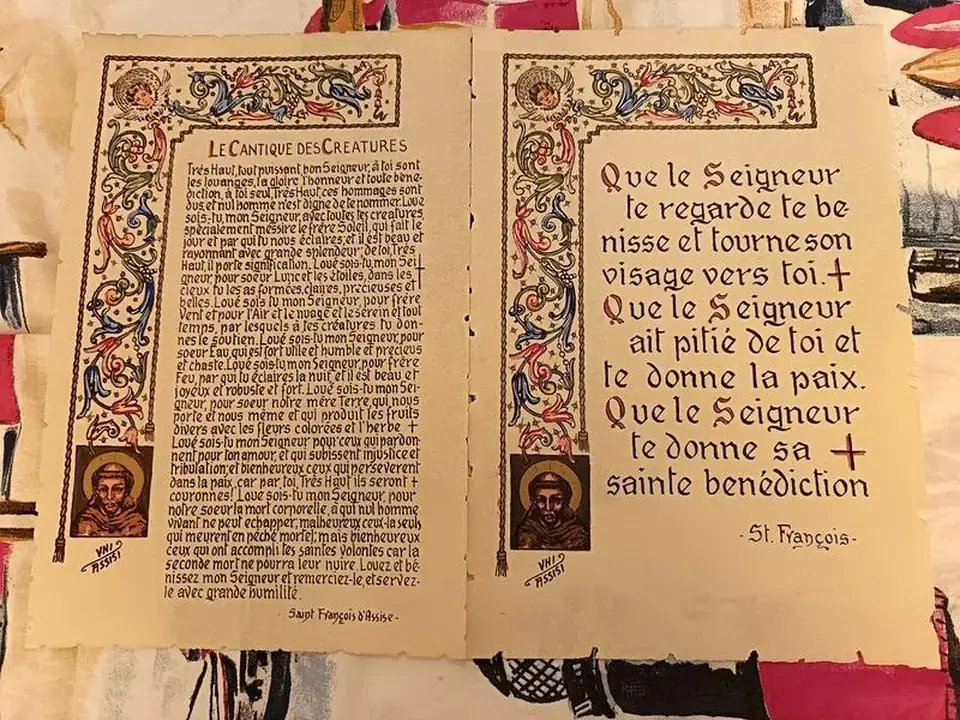 LE CANTIQUE DES CREATURES
Très Haut, tout puissant, bon Seigneur, à toi sont
les louanges, la gloire l'honneur et toute béné-
diction, à toi seul, Très Haut, ces hommages sont
dus et nul homme n'est digne de te nommer. Loué
sois-tu, mon Seigneur, avec toutes tes creatures,
spécialement messire le frère Soleil, qui fait le
jour et par qui tu nous éclaires; et il est beau et
rayonnant avec grande splendeur; de toi, Très
Haut, il porte signification. Loué sois-tu, mon Sei †
gneur, pour soeur Lune et les étoiles, dans les
cieux tu les as formées, claires, précieuses et
belles. Loué sois-tu mon Seigneur, pour frère
Vent et pour l'Air et le nuage et le serein et tout
temps, par lesquels à tes créatures tu don-
nes le soutien. Loué sois-tu mon Seigneur, pour
soeur Eau, qui est fort utile et humble et precieus
et chaste. Loué sois-tu, mon Seigneur, pour frère
Feu, par qui tu éclaires la nuit, et il est beau et
joyeux et robuste et fort. Loué sois-tu, mon Sei-
gneur, pour soeur notre mère Terre, qui nous
porte et nous même et qui produit les fruits
divers avec les fleurs colorées et l'herbe +
Loué sois-tu mon Seigneur pour ceux qui pardon-
nent pour ton amour, et qui subissent injustice et
tribulation; et bienheureux ceux qui persévèrent
dans la paix, car par toi, Très Haut ils seront +
couronnés! Loué sois-tu, mon Seigneur, pour
notre soeur la mort corporelle, à qui nul homme
vivant ne peut echapper; malheureux ceux-la seuls
qui meurent en péché mortel; mais bienheureux
ceux qui ont accompli tes saintes volontés car la
seconde mort ne pourra leur nuire. Louez et bé-
nissez mon Seigneur et remerciez-le, et servez-
le avec grande humilité.
- Saint François d'Assise -
VNI
ASSISI
Que le Seigneur
te regarde te be-
nisse et tourne son
visage vers toi. +
Que le Seigneur
ait pitié de toi et
te donne la paix.
Que le Seigneur
te donne sa +
sainte benédiction
- St. François -
VNI
ASSISI